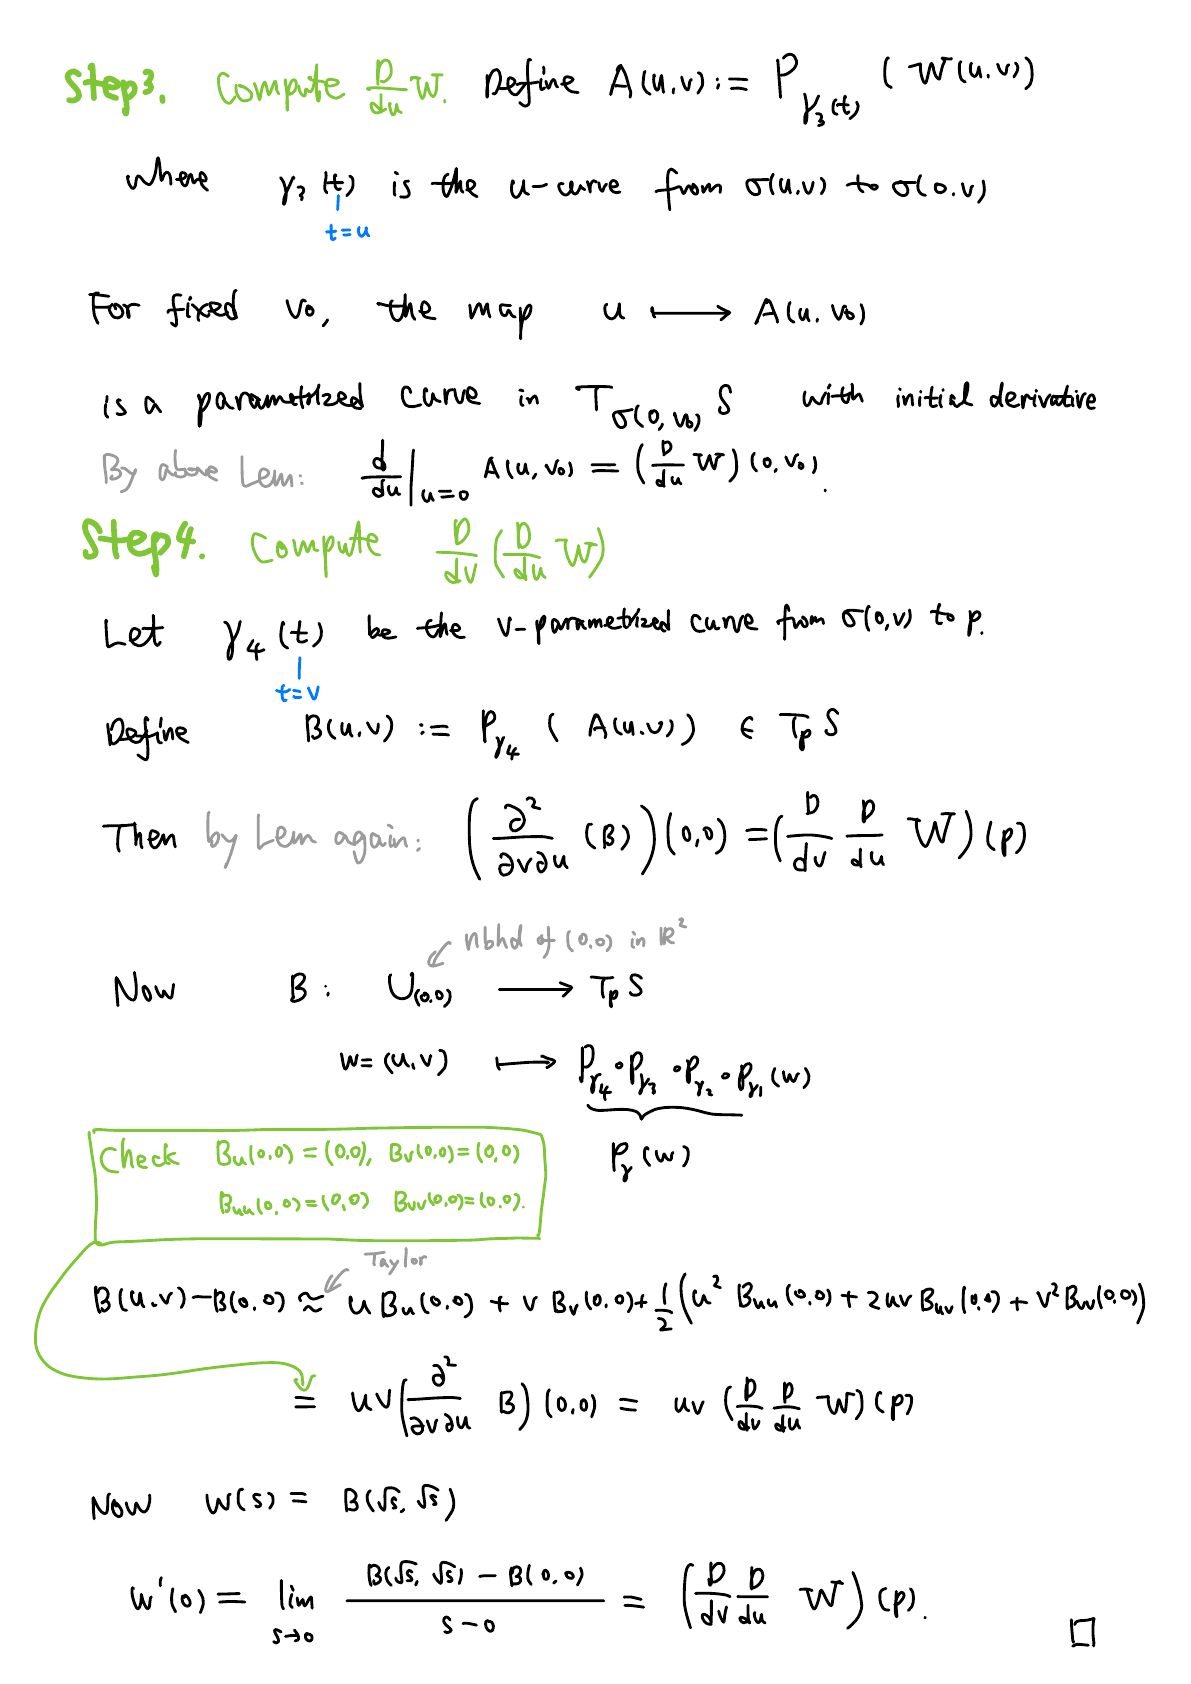 Step3. Compute D/du W. Define A(u.v) := P_{γ₃(t)} ( W(u.v))
where γ₃(t) is the u-curve from σ(u.v) to σ(0.v)
t=u
For fixed v₀, the map u ⟼ A(u. v₀)
is a parametrized curve in T_{σ(0,v₀)} S with initial derivative
By above Lem: d/du|_{u=0} A(u,v₀) = (D/du W)(0,v₀).
Step4. Compute D/dv (D/du W)
Let γ₄(t) be the v-parametrized curve from σ(0,v) to p.
t=v
Define B(u.v) := P_{γ₄} ( A(u.v)) ∈ T_p S
Then by Lem again: (∂²/∂v∂u (B))(0,0) = (D/dv D/du W)(p)
nbhd of (0,0) in ℝ²
Now B: U_{(0,0)} ⟶ T_p S
w=(u,v) ⟼ P_{γ₄}∘P_{γ₃}∘P_{γ₂}∘P_{γ₁}(w)
P_γ(w)
Check Bu(0,0)=(0,0), Bv(0,0)=(0,0)
Buu(0,0)=(0,0) Bvv(0,0)=(0,0).
Taylor
B(u.v)-B(0,0) ≈ u Bu(0,0) + v Bv(0,0)+ 1/2 (u² Buu(0,0)+ 2uv Buv(0,0) + v² Bvv(0,0))
= uv(∂²/∂v∂u B)(0,0) = uv (D/dv D/du W)(p)
Now w(s) = B(√s, √s)
w'(0) = lim_{s→0} B(√s, √s) - B(0,0) / s-0 = (D/dv D/du W)(p). □